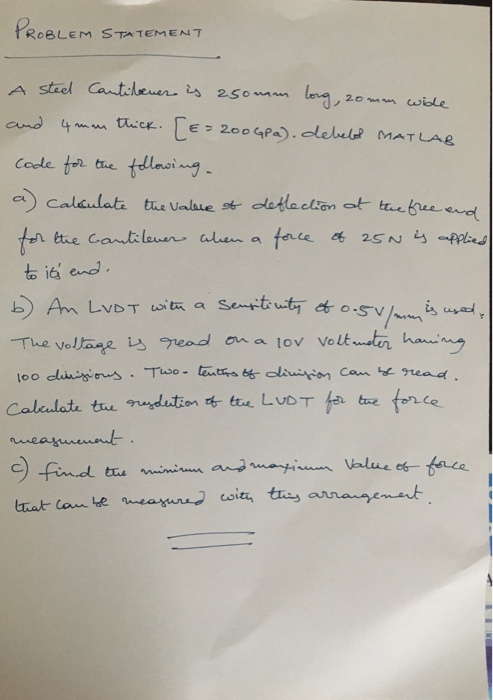 PROBLEM STATEMENT
A steel Cantilever is 250mm long, 20mm wide
and 4mm thick. [E = 200GPa). MATLAB
Code for the following.
a) Calculate the value of deflection at the free end
for the cantilever when a force of 25N is applied
to its' end.
b) An LVDT with a Sensitivity of 0.5V/mm is used.
The voltage is read on a 10V voltmeter having
100 divisions. Two-tenths of division can be read.
Calculate the resolution of the LVDT for the force
measurement.
c) find the minimum and maximum Value of force
that can be measured with this arrangement.